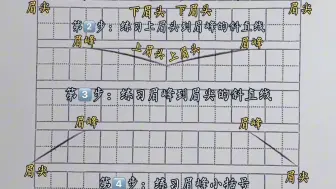 眉尖 下眉头 下眉头 眉尖
第2步：练习上眉头到眉尖的斜直线
眉峰 眉峰
上眉头 上眉头
第3步：练习眉峰到眉尖的斜直线
眉峰 眉峰
眉尖 眉尖
第4步：练习眉峰小括号